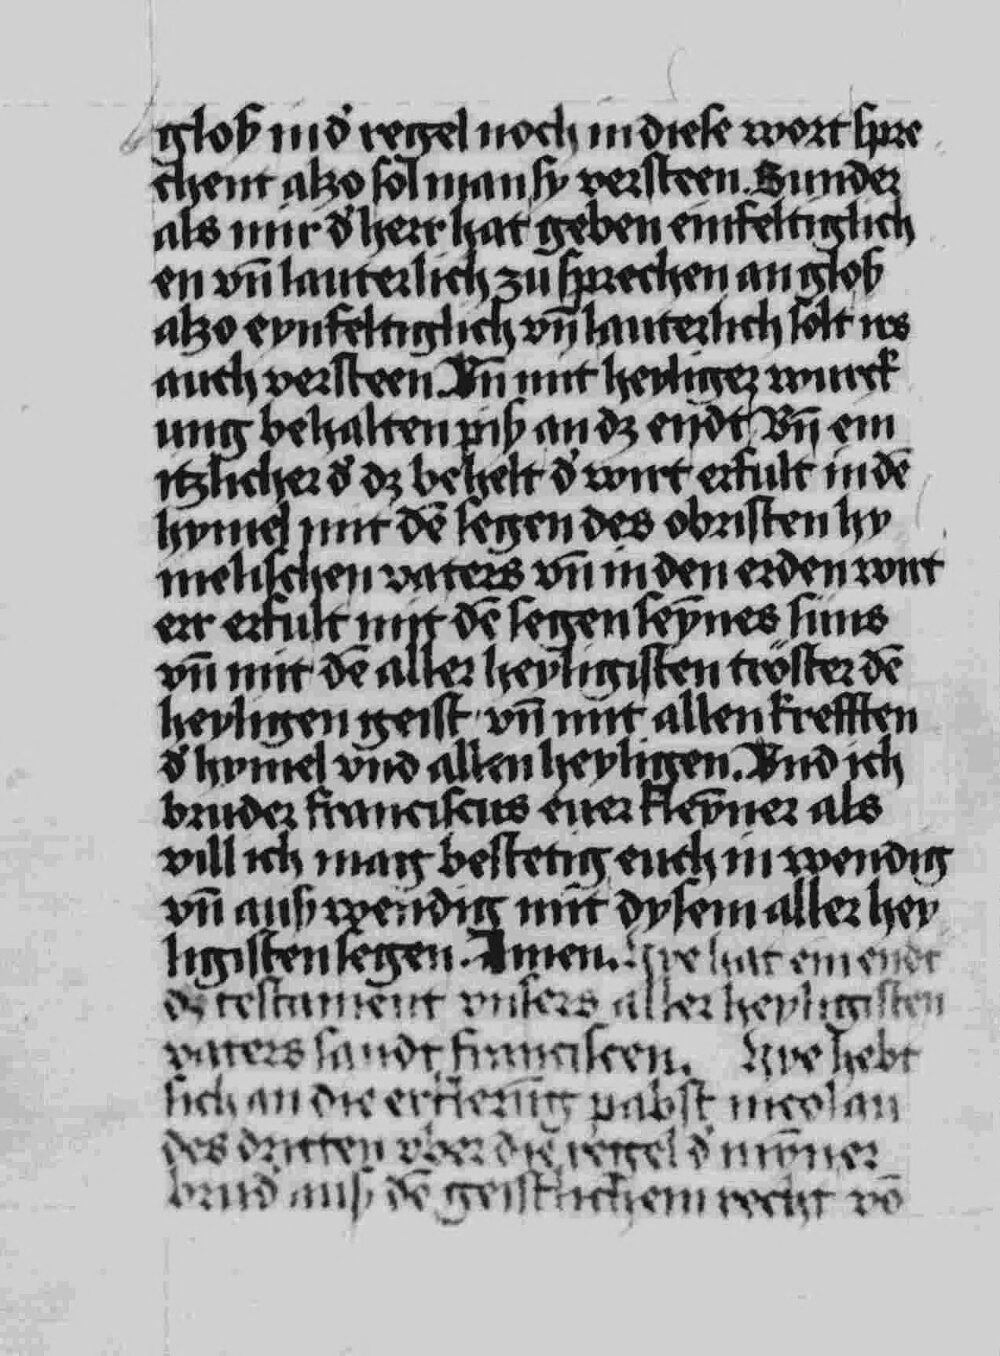 gloß in d' regel noch in diese wort spre
chent alzo sol man sy versteen. Sunder
als mir d' herr hat geben einfeltiglich
en vn̄ lauterlich zu sprechen an gloß
alzo eynfeltiglich vn̄ lauterlich solt irs
auch versteen. Vn̄ mit heyliger wurck
ung behalten piß an dz endt Vn̄ ein
itzlicher d' dz behelt d' wirt erfult in dē
hymel mit dē segen des obristen hy
melischen vaters vn̄ in den erden wirt
err erfult mit dē segen seynes suns
vn̄ mit dē aller heyligisten tröster dē
heyligen geist vn̄ mit allen krefften
d' hymel vnd allen heyligen. Vnd ich
bruder franciscus euer kleyner als
vill ich mag bestetig euch in wendig
vn̄ auß wendig mit dysem aller hey
ligisten segen. Amen. Hye hat ein endt
dz testament vnsers aller heyligisten
vaters sandt Francisceen. Hye hebt
sich an die erklerūg pabst nicolau
des dritten vber die regel d' mȳner
brud' auß dē geistlichem recht vō